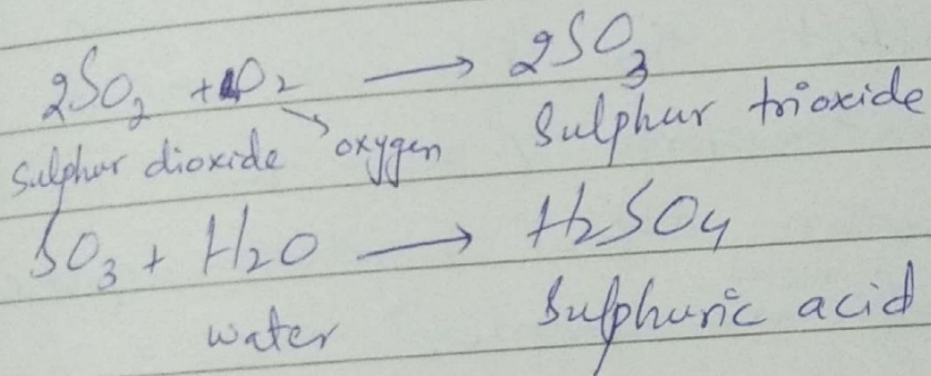 2SO₂ + O₂ → 2SO₃
Sulphur dioxide oxygen Sulphur trioxide
SO₃ + H₂O → H₂SO₄
water Sulphuric acid